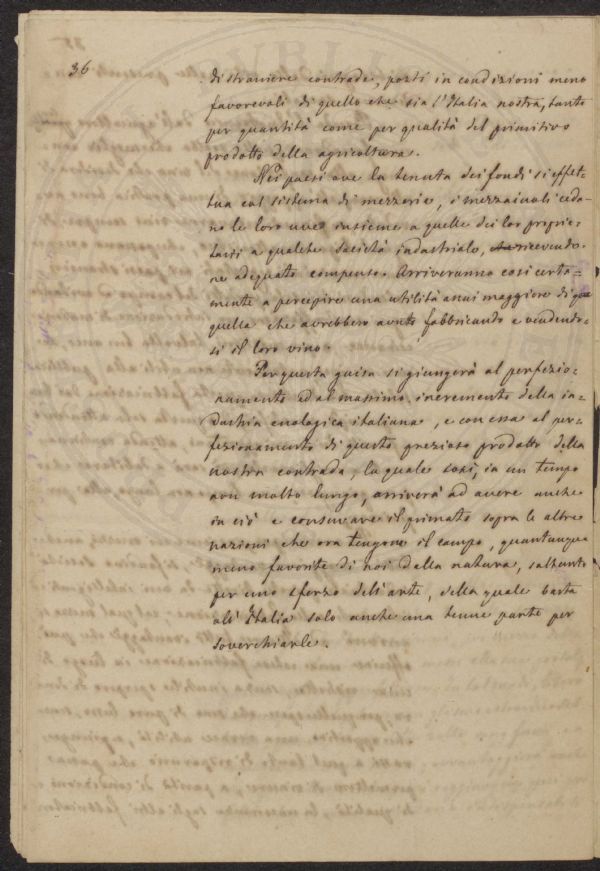 36
di straniere contrade, posti in condizioni meno
favorevoli di quello che sia l'Italia nostra, tanto
per quantità come per qualità del primitivo
prodotto della agricoltura.
Nei paesi ove la tenuta dei fondi si effet-
tua col sistema di mezzerie, i mezzaiuoli ceda-
no le loro uve insieme a quelle dei lor proprie-
tari a qualche società industriale, ricevendo-
ne adeguato compenso. Arriveranno così certa=
mente a percepire una utilità anzi maggiore di
quella che avrebbero avuto fabbricando e vendendo-
si il loro vino.
Per questa guisa si giungerà al perfezio-
namento ed al massimo incremento della in=
dustria enologica italiana, e con essa al per=
fezionamento di questo prezioso prodotto della
nostra contrada, la quale così, in un tempo
non molto lungo, arriverà ad avere anche
in ciò e conservare il primato sopra le altre
nazioni che ora tengono il campo, quantunque
meno favorite di noi dalla natura, soltanto
per uno sforzo dell'arte, della quale basta
all'Italia solo anche una tenue parte per
soverchiarle.